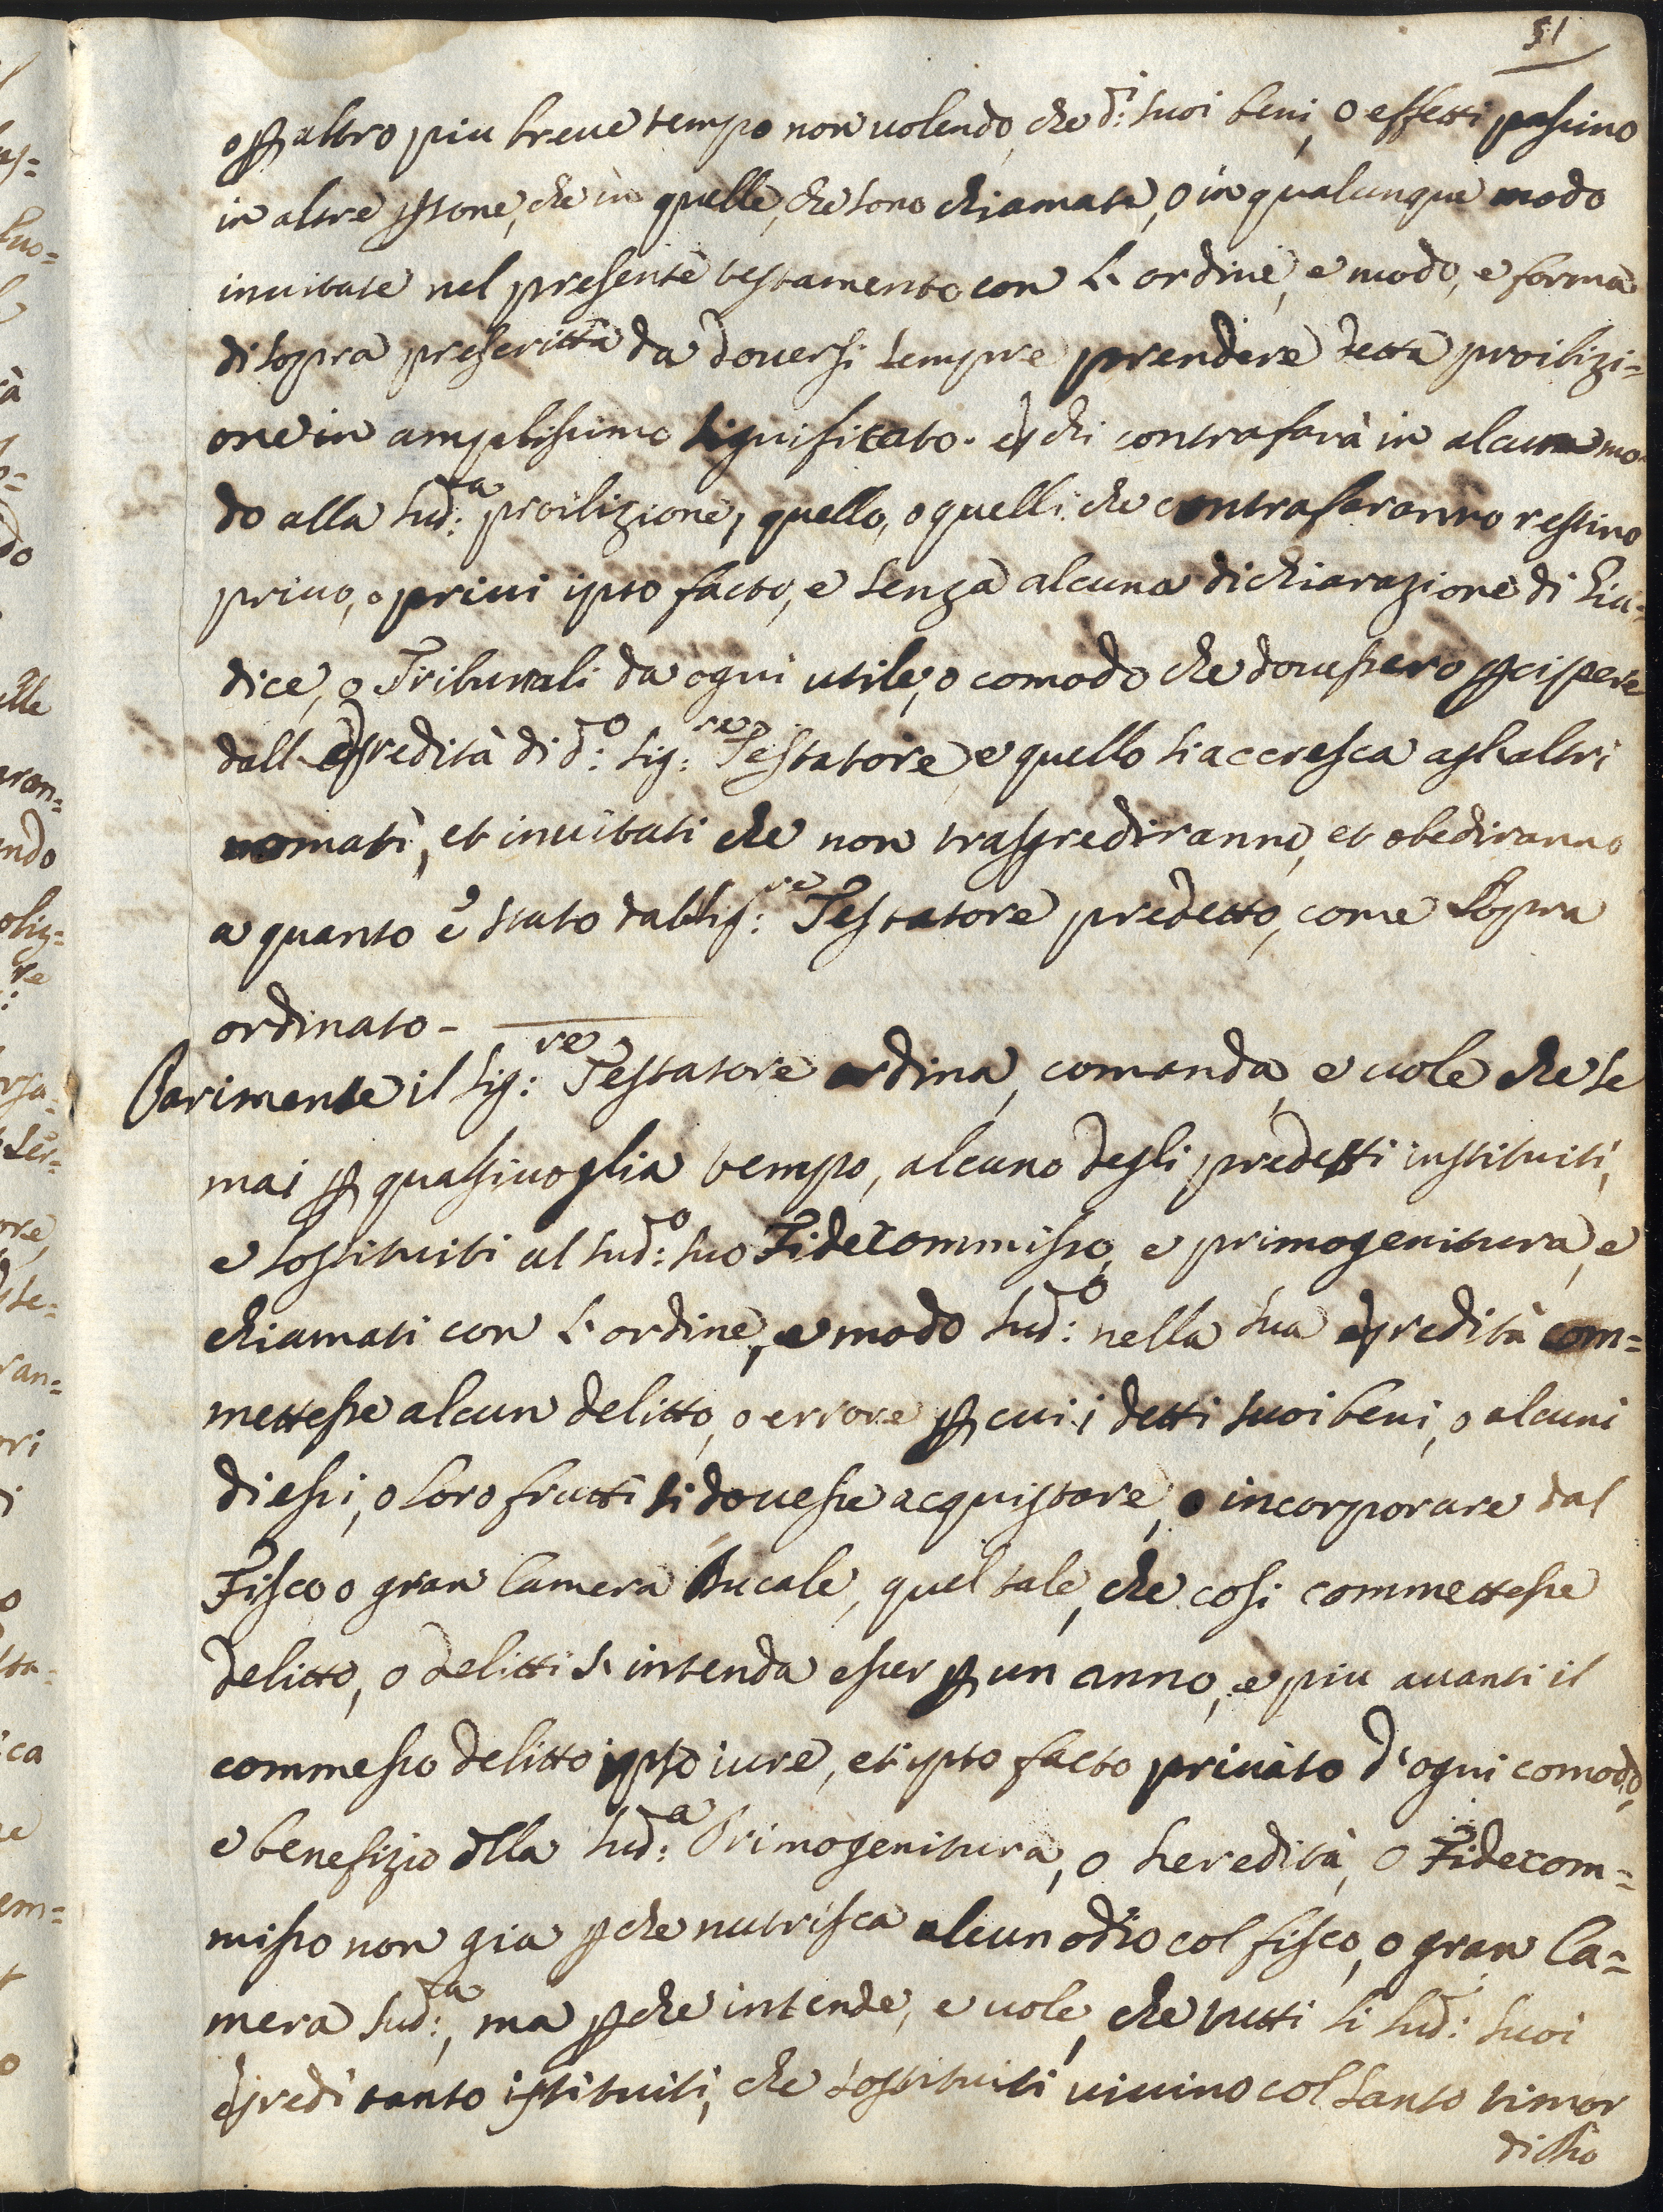 51
o p altro piu breve tempo non volendo, che d:i suoi beni, o effetti passino
in altre psone, che in quelle, che sono chiamate, o in qualunque modo
invitate nel presente testamento con l'ordine, e modo, e forma
di sopra prescritta da doversi sempre prendere detta proibizi=
one in amplissimo significato. e chi contrafarà in alcun mo=
do alla sud:ta proibizione, quello, o quelli che contrafaranno restino
privo, o privi ipso facto, e senza alcuna dichiarazione di Giu=
dice, o Tribunali da ogni utile, o comodo che dovessero pcipere
dall'eredità di d:o Sig:re Testatore, e quello si accresca agl'altri
nomati, et invitati che non trasgrediranno, et obediranno
a quanto è stato dal Sig:re Testatore predetto, come sopra
ordinato-
Parimente il Sig:re Testatore ordina, comanda, e vole che se
mai p qualsivoglia tempo, alcuno degli predetti instituiti,
e sostituiti al sud:o suo Fidecommisso, e primogenitura, e
chiamati con l'ordine, e modo sud:o nella sua eredità com=
mettesse alcun delitto, o errore p cui i detti suoi beni, o alcuni
di essi, o loro frutti si dovesse acquistare, o incorporare dal
Fisco o gran Camera Ducale, quel tale, che così commettesse
delitto, o delitti s'intenda esser p un anno, e piu avanti il
commesso delitto ipso iure, et ipso facto privato d'ogni comodo,
e benefizio dlla sud:a Primogenitura, o heredità, o Fidecom=
misso non gia pche nutrisca alcun odio col fisco, o gran Ca=
mera sud:ta, ma pche intende, e vole, che tutti li sud:i suoi
eredi tanto istituiti, che sostituiti vivino col santo timor
di Dio